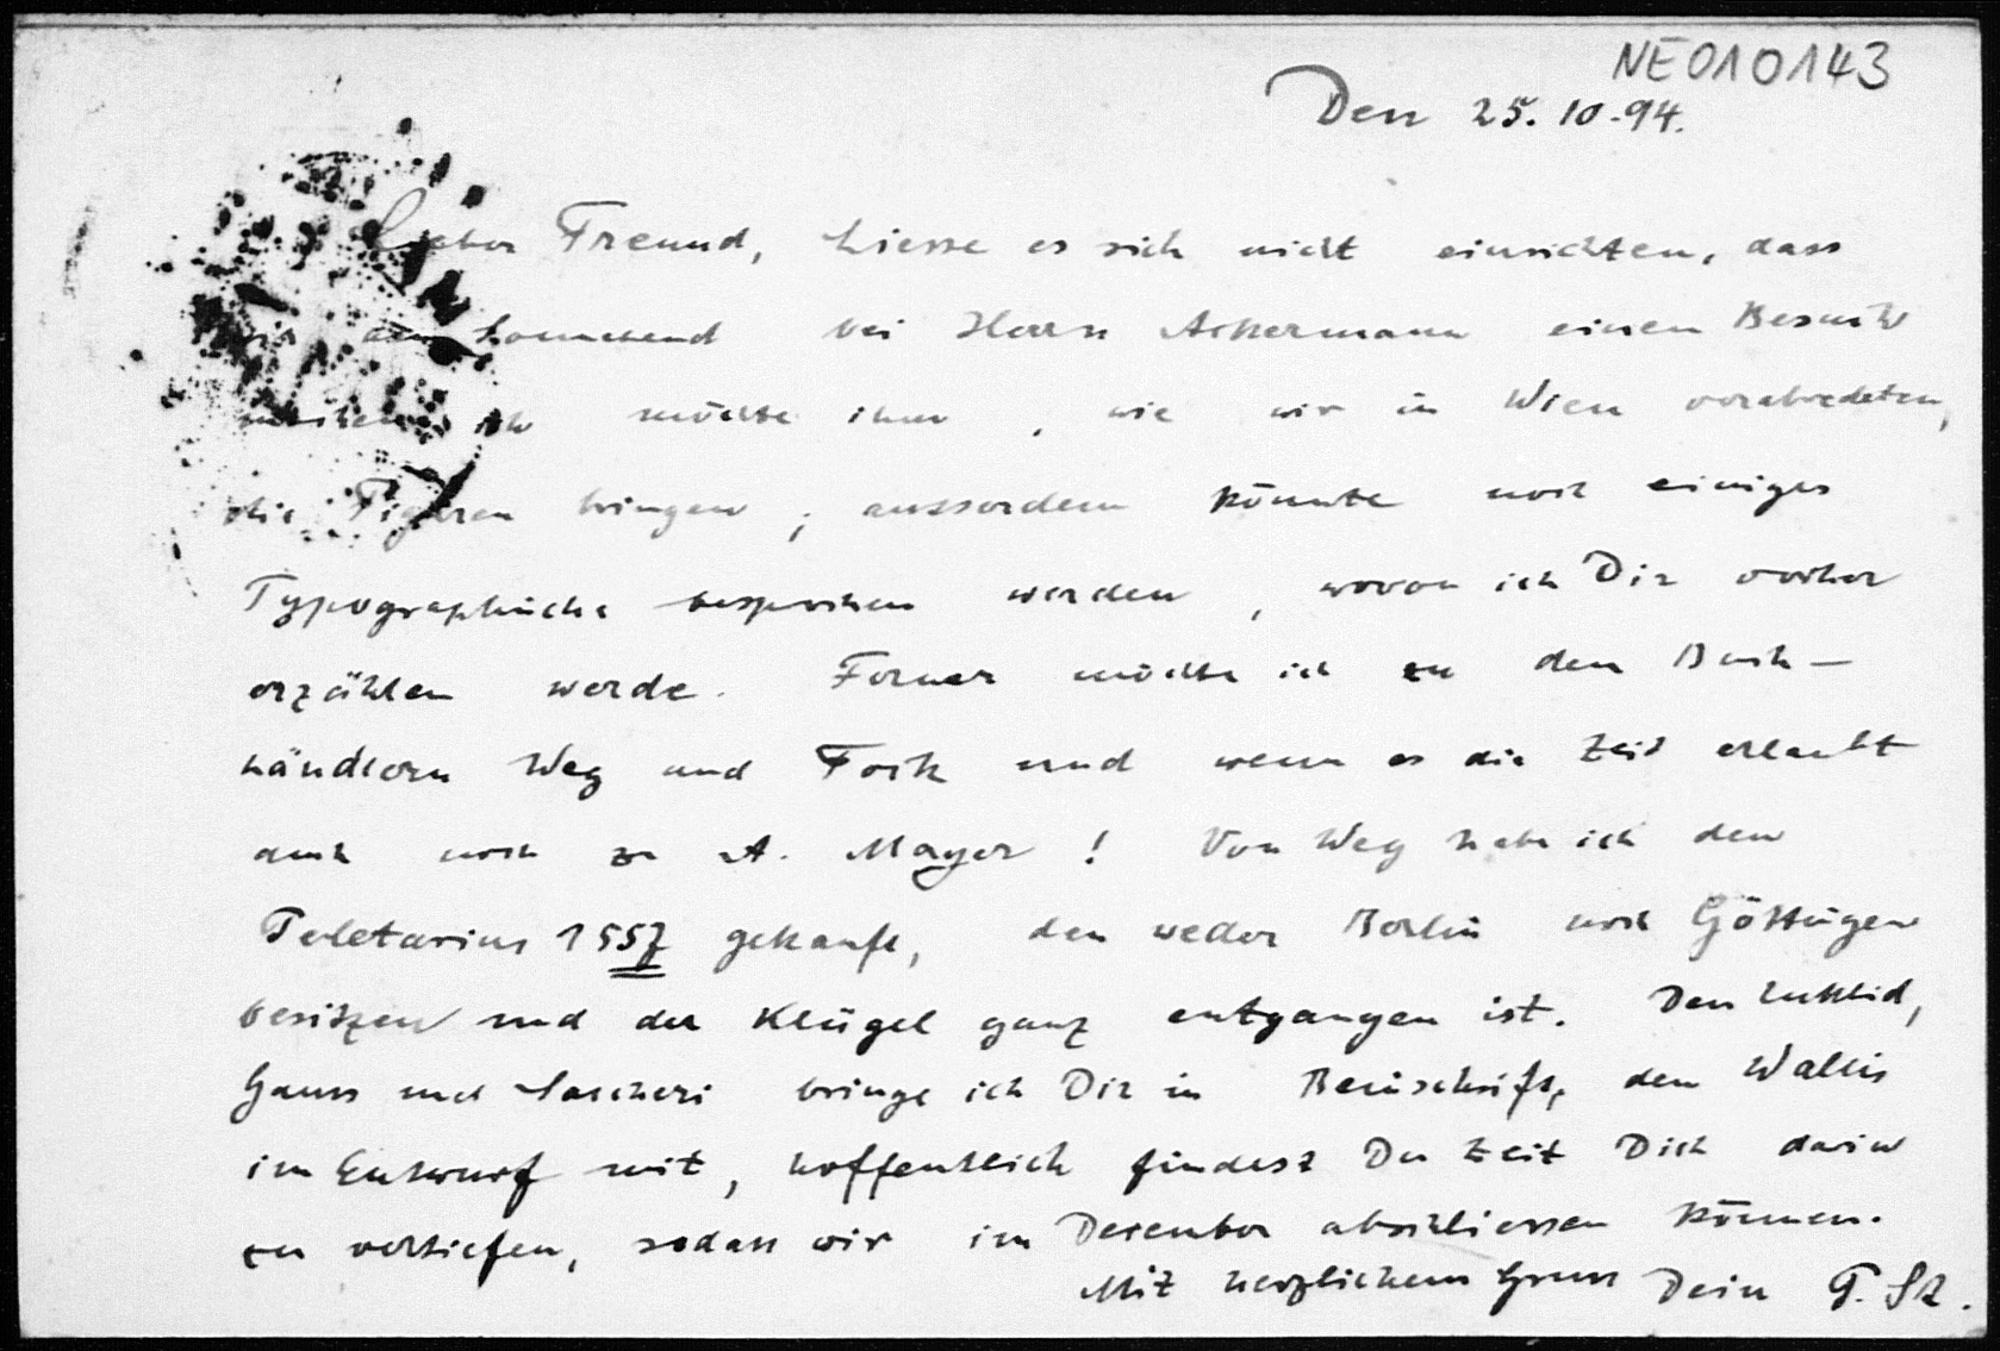 NE010143
Den 25.10.94.
Lieber Freund, Liesse es sich nicht einrichten, dass
wir am Sonnabend bei Herrn Ackermann einen Besuch
machen ich möchte ihm, wie wir in Wien verabredeten,
die Figuren bringen; ausserdem könnte noch einiges
Typographische besprochen werden, wovon ich Dir vorher
erzählen werde. Ferner möchte ich zu den Buch-
händlern Weg und Fock und wenn es die Zeit erlaubt
auch noch zu A. Mayer! Von Weg habe ich den
Peletarius 1557 gekauft, den weder Berlin noch Göttingen
besitzen und der Klügel ganz entgangen ist. Den Euklid,
Gauss und Saccheri bringe ich Dir in Reinschrift, den Wallis
im Entwurf mit, hoffentlich findest Du Zeit Dich darin
zu vertiefen, sodass wir im Dezember abschliessen können.
Mit herzlichem Gruss Dein P. St.